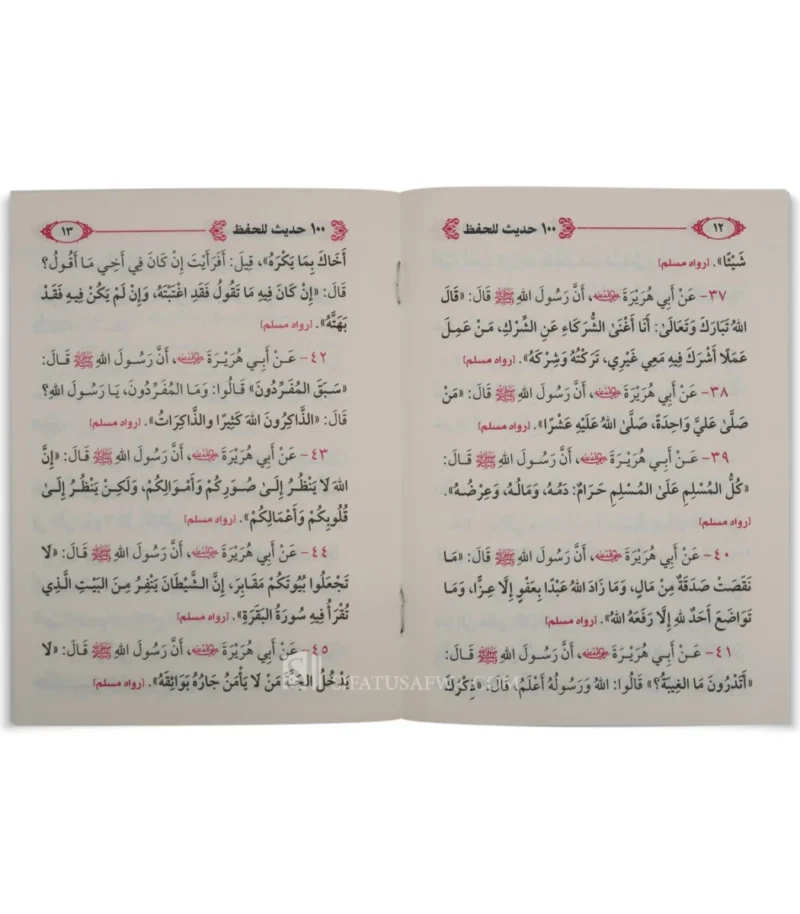 ١٢
١٠٠ حديث للحفظ
شَيْئًا». [رواه مسلم]
٣٧- عَنْ أَبِي هُرَيْرَةَ رضي الله عنه، أَنَّ رَسُولَ اللهِ ﷺ قَالَ: «قَالَ
اللهُ تَبَارَكَ وَتَعَالَى: أَنَا أَغْنَى الشُّرَكَاءِ عَنِ الشِّرْكِ، مَنْ عَمِلَ
عَمَلًا أَشْرَكَ فِيهِ مَعِي غَيْرِي، تَرَكْتُهُ وَشِرْكَهُ». [رواه مسلم]
٣٨- عَنْ أَبِي هُرَيْرَةَ رضي الله عنه، أَنَّ رَسُولَ اللهِ ﷺ قَالَ: «مَنْ
صَلَّى عَلَيَّ وَاحِدَةً، صَلَّى اللهُ عَلَيْهِ عَشْرًا». [رواه مسلم]
٣٩- عَنْ أَبِي هُرَيْرَةَ رضي الله عنه، أَنَّ رَسُولَ اللهِ ﷺ قَالَ:
«كُلُّ المُسْلِمِ عَلَى المُسْلِمِ حَرَامٌ: دَمُهُ، وَمَالُهُ، وَعِرْضُهُ».
[رواه مسلم]
٤٠- عَنْ أَبِي هُرَيْرَةَ رضي الله عنه، أَنَّ رَسُولَ اللهِ ﷺ قَالَ: «مَا
نَقَصَتْ صَدَقَةٌ مِنْ مَالٍ، وَمَا زَادَ اللهُ عَبْدًا بِعَفْوٍ إِلَّا عِزًّا، وَمَا
تَوَاضَعَ أَحَدٌ لِلهِ إِلَّا رَفَعَهُ اللهُ». [رواه مسلم]
٤١- عَنْ أَبِي هُرَيْرَةَ رضي الله عنه، أَنَّ رَسُولَ اللهِ ﷺ قَالَ:
«أَتَدْرُونَ مَا الغِيبَةُ؟» قَالُوا: اللهُ وَرَسُولُهُ أَعْلَمُ، قَالَ: «ذِكْرُكَ
١٠٠ حديث للحفظ
١٣
أَخَاكَ بِمَا يَكْرَهُ»، قِيلَ: أَفَرَأَيْتَ إِنْ كَانَ فِي أَخِي مَا أَقُولُ؟
قَالَ: «إِنْ كَانَ فِيهِ مَا تَقُولُ فَقَدِ اغْتَبْتَهُ، وَإِنْ لَمْ يَكُنْ فِيهِ فَقَدْ
بَهَتَّهُ». [رواه مسلم]
٤٢- عَنْ أَبِي هُرَيْرَةَ رضي الله عنه، أَنَّ رَسُولَ اللهِ ﷺ قَالَ:
«سَبَقَ المُفَرِّدُونَ» قَالُوا: وَمَا المُفَرِّدُونَ، يَا رَسُولَ اللهِ؟
قَالَ: «الذَّاكِرُونَ اللهَ كَثِيرًا وَالذَّاكِرَاتُ». [رواه مسلم]
٤٣- عَنْ أَبِي هُرَيْرَةَ رضي الله عنه، أَنَّ رَسُولَ اللهِ ﷺ قَالَ: «إِنَّ
اللهَ لَا يَنْظُرُ إِلَى صُوَرِكُمْ وَأَمْوَالِكُمْ، وَلَكِنْ يَنْظُرُ إِلَى
قُلُوبِكُمْ وَأَعْمَالِكُمْ». [رواه مسلم]
٤٤- عَنْ أَبِي هُرَيْرَةَ رضي الله عنه، أَنَّ رَسُولَ اللهِ ﷺ قَالَ: «لَا
تَجْعَلُوا بُيُوتَكُمْ مَقَابِرَ، إِنَّ الشَّيْطَانَ يَنْفِرُ مِنَ البَيْتِ الَّذِي
تُقْرَأُ فِيهِ سُورَةُ البَقَرَةِ». [رواه مسلم]
٤٥- عَنْ أَبِي هُرَيْرَةَ رضي الله عنه، أَنَّ رَسُولَ اللهِ ﷺ قَالَ: «لَا
يَدْخُلُ الجَنَّةَ مَنْ لَا يَأْمَنُ جَارُهُ بَوَائِقَهُ». [رواه مسلم]